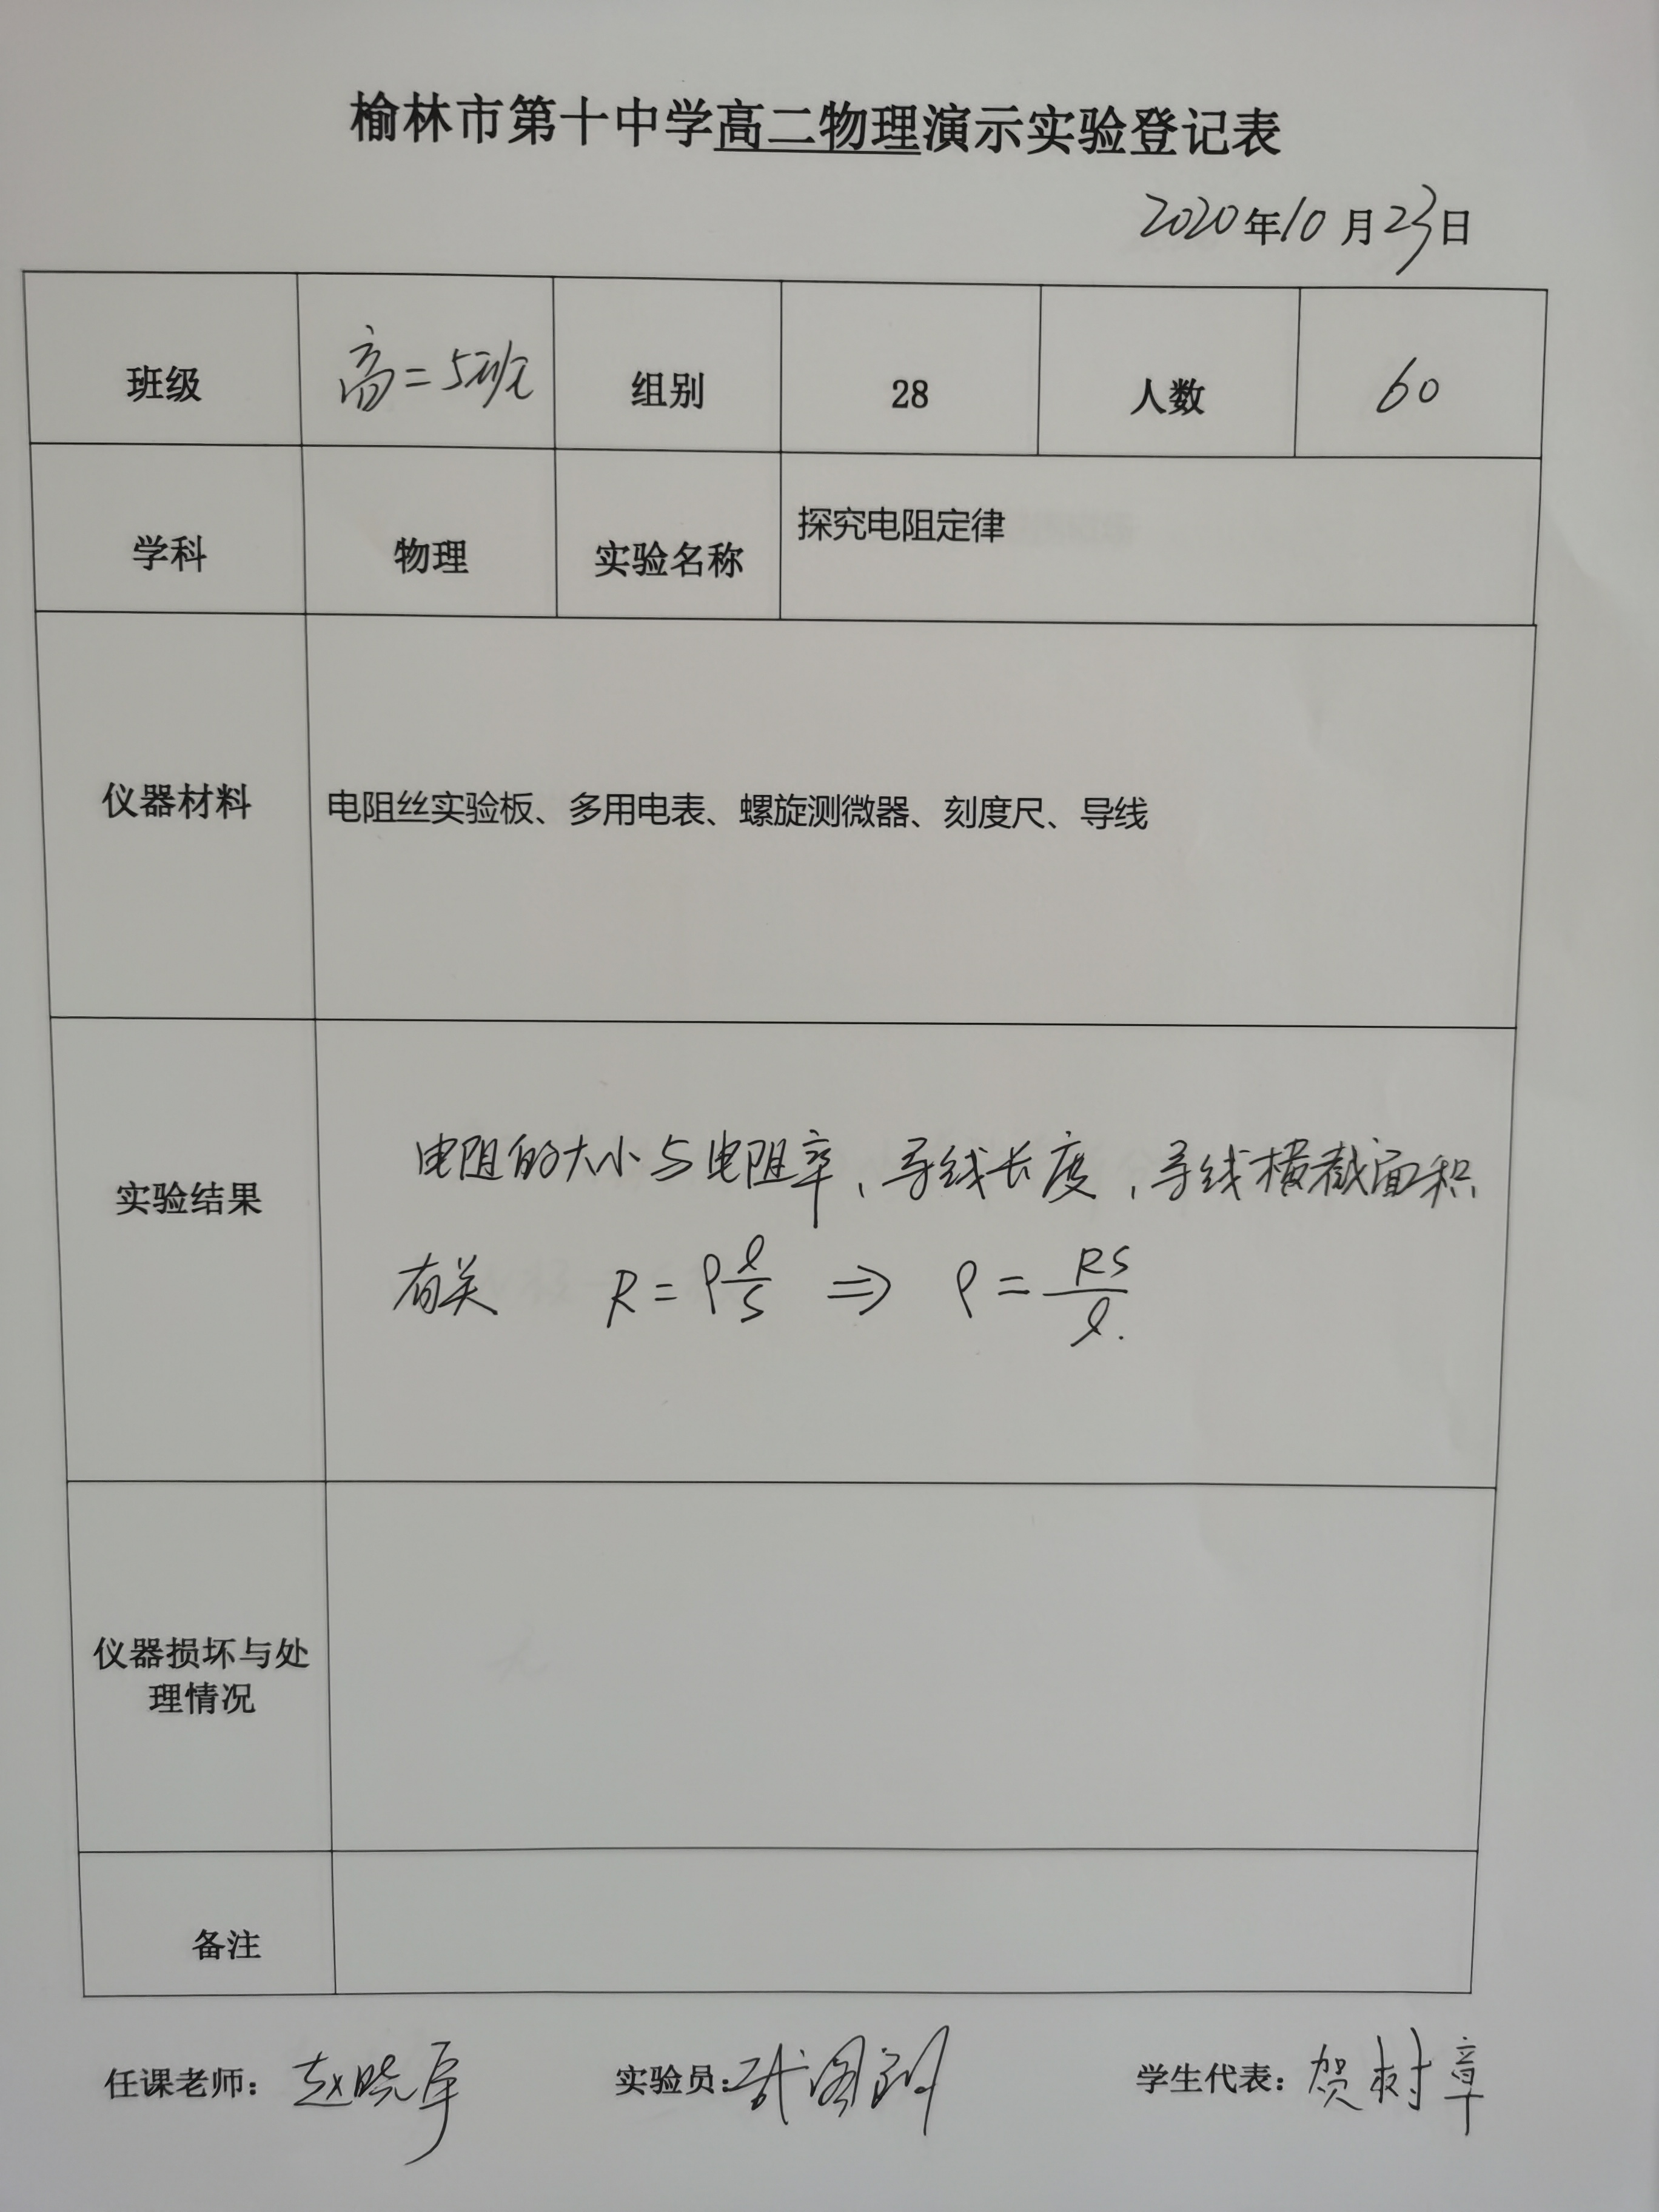 榆林市第十中学高二物理演示实验登记表
2020年10月23日
班级 高二5班 组别 28 人数 60
学科 物理 实验名称 探究电阻定律
仪器材料 电阻丝实验板、多用电表、螺旋测微器、刻度尺、导线
电阻的大小与电阻率、导线长度、导线横截面积
实验结果
有关 R=ρl/S ⇒ ρ=RS/l.
仪器损坏与处
理情况
备注
任课老师：赵晓军 实验员： 学生代表：贺树章